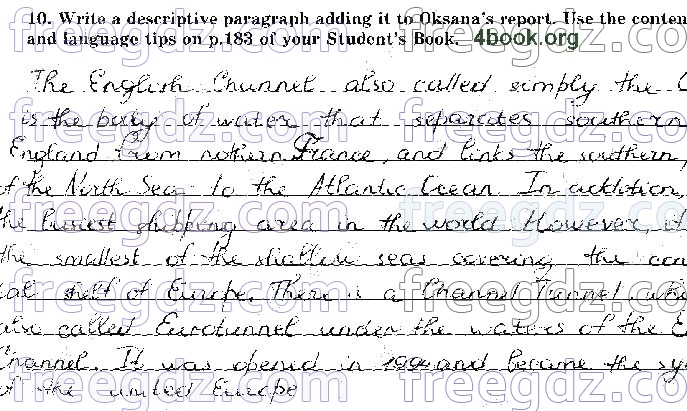 10. Write a descriptive paragraph adding it to Oksana's report. Use the conten
and language tips on p.183 of your Student's Book. 4book.org
The English Channel also called simply the C
is the body of water that separates southern
England from nothern France, and links the southern,
of the North Sea to the Atlantic Ocean In addition,
the busiest shipping area in the world However, it
the smallest of the shallow seas covering the con
tal shelf of Europe. There is a Channel Tunnel whi
also called Eurotunnel under the waters of the E
Channel. It was opened in 1994 and became the sy
of the united Europe
freegdz.com